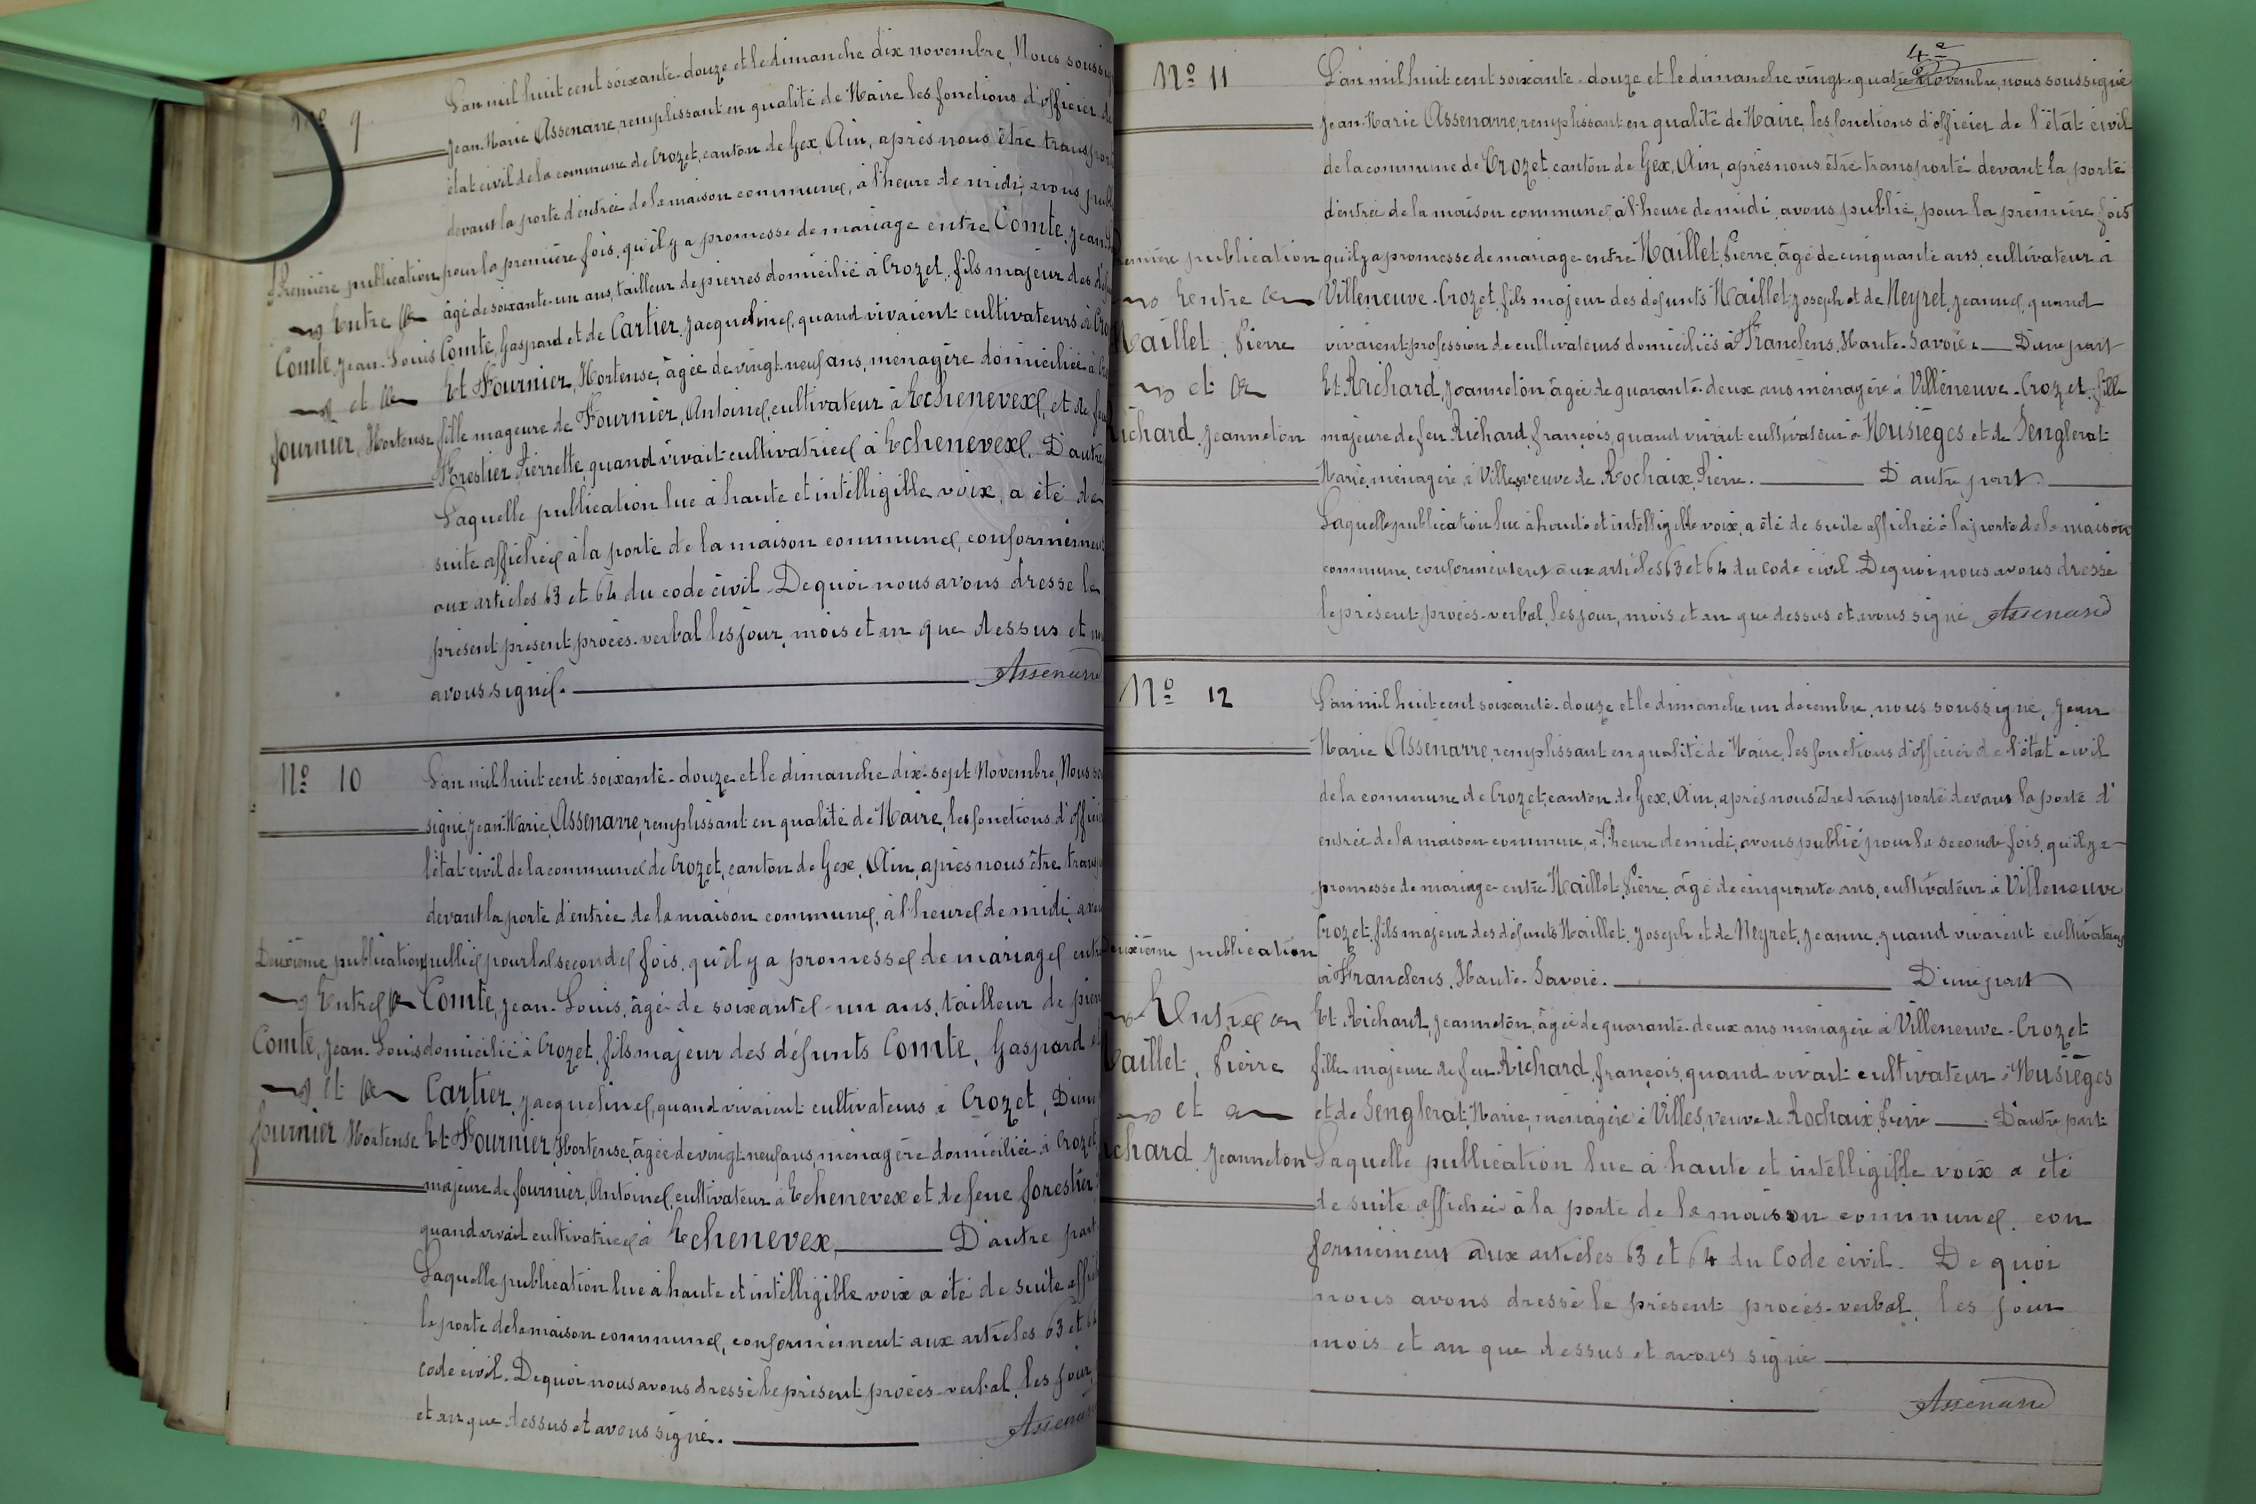 Nº 9
L'an mil huit cent soixante-douze et le dimanche dix novembre, Nous soussig
Jean-Marie Assenarre, remplissant en qualité de Maire les fonctions d'officier de
état civil de la commune de Crozet, canton de Gex, Ain, après nous être transport
devant la porte d'entrée de la maison commune, à l'heure de midi, avons publ
Première publication
pour la première fois, qu'il y a promesse de mariage entre Comte, Jean
Entre
âgé de soixante-un ans, tailleur de pierres domicilié à Crozet, fils majeur des
Comte, Jean-Louis
Comte, Gaspard et de Cartier, Jacqueline, quand vivaient cultivateurs à Cro
et
Et Fournier, Hortense, âgée de vingt-neuf ans, ménagère domiciliée à
fournier, Hortense
fille mageure de Fournier, Antoine, cultivateur à Echenevex, et de
Forestier, Pierrette, quand vivait cultivatrice à Echenevex, D'autre
Laquelle publication lue à haute et intelligible voix, a été de
suite affichée à la porte de la maison commune, conformément
aux articles 63 et 64 du code civil. De quoi nous avons dressé le
présent présent procès-verbal les jour, mois et an que dessus et
avons signé.
Assenarre
Nº 10
L'an mil huit cent soixante-douze et le dimanche dix-sept Novembre, Nous
signé Jean-Marie, Assenarre, remplissant en qualité de Maire, les fonctions d'offici
l'état civil de la commune de Crozet, canton de Gex, Ain, après nous être trans
devant la porte d'entrée de la maison commune, à l'heure de midi, avo
Deuxième publication
publié pour la seconde fois, qu'il y a promesse de mariage entr
Entre
Comte, Jean-Louis, âgé de soixante-un ans, tailleur de pier
Comte, Jean-Louis
domicilié à Crozet, fils majeur des défunts Comte, Gaspard
et
Cartier, Jacqueline, quand vivaient cultivateurs à Crozet, D'une
fournier Hortense
Et Fournier, Hortense, âgée de vingt neuf ans, ménagère domiciliée à Crozet,
majeure de fournier, Antoine, cultivateur à Echenevex et de feue forestier
quand vivait cultivatrice à Echenevex, D'autre part
Laquelle publication lue à haute et intelligible voix a été de suite affich
la porte de la maison commune, conformément aux articles 63 et 64
code civil. De quoi nous avons dressé le présent procès-verbal, les jour,
et an que dessus et avons signé.
Assenarre
4e
Nº 11
L'an mil huit cent soixante-douze et le dimanche vingt-quatre Novembre, nous soussigné
Jean-Marie Assenarre, remplissant en qualité de Maire, les fonctions d'officier de l'état civil
de la commune de Crozet, canton de Gex, Ain, après nous être transporté devant la porte
d'entrée de la maison commune, à l'heure de midi, avons publié, pour la première fois
remière publication
qu'il y a promesse de mariage entre Maillet, Pierre, âgé de cinquante ans, cultivateur à
Entre
Villeneuve-Crozet, fils majeur des défunts Maillet, Joseph et de Neyret, Jeanne, quand
Maillet, Pierre
vivaient profession de cultivateurs domiciliés à Franclens, Haute-Savoie. D'une part
et
Et Richard, Jeanneton âgée de quarante-deux ans ménagère à Villeneuve-Crozet, fille
ichard, Jeanneton
majeure de feu Richard, françois, quand vivait cultivateur à Musièges et de Senglerat
Marie, ménagère à Villes, veuve de Rochaix, Pierre. D'autre part.
Laquelle publication lue à haute et intelligible voix, a été de suite affichée à la porte de la maison
commune, conformément aux articles 63 et 64 du Code civil. De quoi nous avons dressé
le présent procès-verbal, les jour, mois et an que dessus et avons signé Assenarre
Nº 12
L'an mil huit cent soixante-douze et le dimanche un décembre, nous soussigné, Jean
Marie Assenarre, remplissant en qualité de Maire, les fonctions d'officier de l'état civil
de la commune de Crozet, canton de Gex, Ain, après nous être transporté devant la porte d'
entrée de la maison commune, à l'heure de midi, avons publié pour la seconde fois, qu'il y a
promesse de mariage entre Maillet, Pierre, âgé de cinquante ans, cultivateur à Villeneuve
Crozet, fils majeur des défunts Maillet, Joseph et de Neyret, Jeanne, quand vivaient cultivateurs
euxième publication
à Franclens, Haute-Savoie. D'une part
Entre
Et Richard, Jeanneton, âgée de quarante-deux ans ménagère à Villeneuve-Crozet
Maillet, Pierre
fille majeure de feu Richard, françois, quand vivait cultivateur à Musièges
et
et de Senglerat, Marie, ménagère à Villes, veuve de Rochaix, Pierre D'autre part
ichard, Jeanneton
Laquelle publication lue à haute et intelligible voix a été
de suite affichée à la porte de la maison commune, con
formément aux articles 63 et 64 du Code civil. De quoi
nous avons dressé le présent procès-verbal, les jour
mois et an que dessus et avons signé
Assenarre